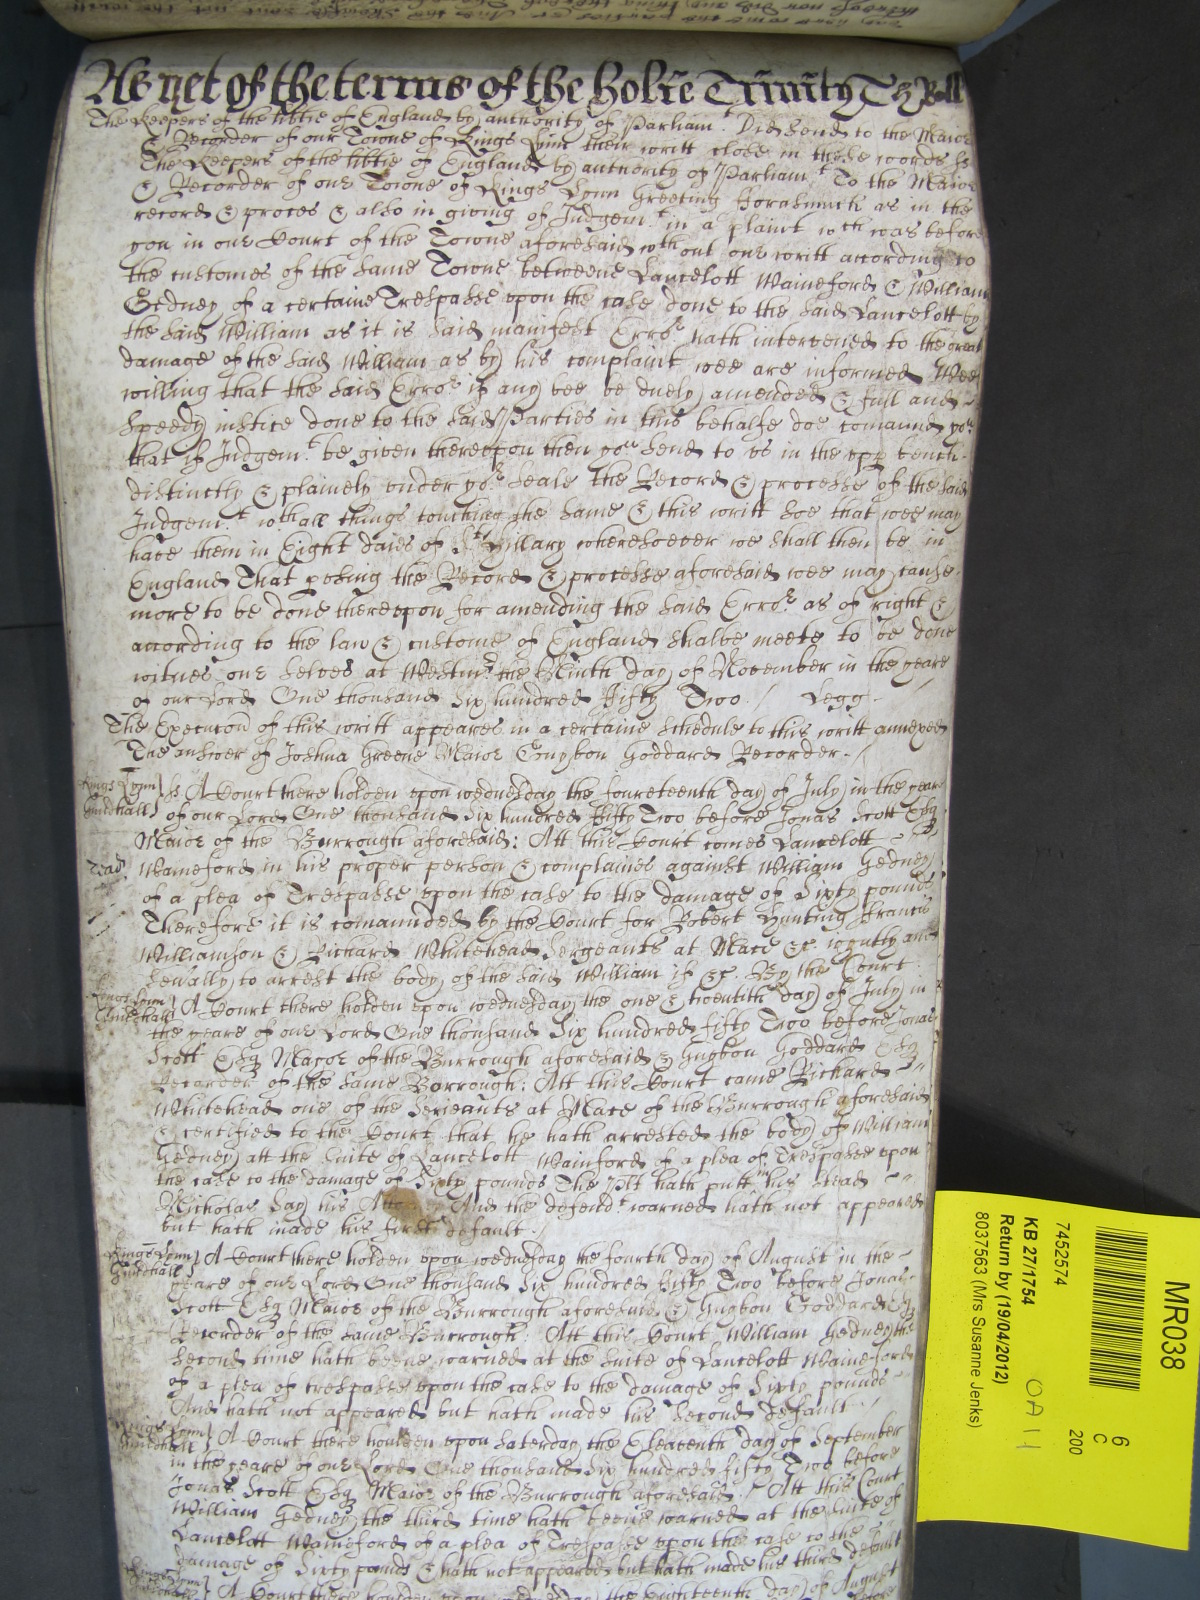 As yet of the terme of the holie Trinity Ty Roll
The Keepers of the libtie of England by authority of Parliam.t Did send to the Maior
& Recorder of our Towne of Kings Linn their writt close in these words ss
The Keepers of the libtie of England by authority of Parliam.t To the Maior
& Recorder of our Towne of Kings Lynn Greeting Forasmuch as in the
record & proces & also in giving of Judgem.t in a plaint wch was before
you in our Court of the Towne aforesaid wthout our writt according to
the customes of the same Towne betweene Lancelott Waineford & William
Gedney of a certaine Trespasse upon the case done to the said Lancelott by
the said William as it is said manifest Erro.r hath intervened to the great
damage of the said William as by his complaint wee are informed Wee
willing that the said Erro.r if any bee be duely amended & full and
speedy iustice done to the said Parties in this behalfe doe comaund you
that if Judgem.t be given thereupon then you send to us in the upp bench
distinctly & plainely under yo.r seale the Record & processe of the said
Judgem.t wth all things touching the same & this writt soe that wee may
have them in Eight daies of St Hillary wheresoever we shall then be in
England That the Record & processe aforesaid wee may cause
more to be done thereupon for amending the said Erro.r as of right &
according to the law & custome of England shalbe meete to be done
witnes our selves at Westmr. the Ninth day of November in the yeare
of our Lord One thousand Six hundred Fifty Two / Legg.
The Execucon of this writt appeares in a certaine schedule to this writt annexed
The answer of Joshua Greene Maior Goddard Recorder.
Kings Lynn Guildhall } ss A Court there holden upon wednesday the foureteenth day of July in the yeare
of our Lord One thousand Six hundred Fifty Two before Jonas Scott Esq
Maior of the Burrough aforesaid: Att this Court comes Lancelott
Waineford in his proper person & complaines against William Gedney
of a plea of Trespasse upon the case to the damage of Sixty pounds
Therefore it is comaunded by the Court for Robert Hunting Francis
Williamson & Richard Whitehead Sergeants at Mace &c ioyntly and
sevally to arrest the body of the said William if &c. By the Court
Kings Lynn Guildhall } A Court there holden upon wednesday the one & twentith day of July in
the yeare of our Lord One thousand Six hundred fifty Two before Jonas
Scott Esq Mayor of the Burrough aforesaid & Guybon Goddard Esq
Recorder of the same Borrough: Att this Court came Richard
Whitehead one of the Serieants at Mace of the Burrough aforesaid
& certified to the Court that he hath arrested the body of William
Gedney att the suite of Lancelott Wainford of a plea of Trespasse upon
the case to the damage of Sixty pounds The Plt hath putt in his stead
Nicholas Say his And the defend.t warned hath not appeared
but hath made his first default. /
Kings Lynn Guildhall } A Court there holden upon wednesday the fourth day of August in the
yeare of our Lord One thousand Six hundred Fifty Two before Jonas
Scott Esq Maior of the Burrough aforesaid & Guybon Goddard Esq
Recorder of the same Burrough: Att this Court William Gedney the
second time hath beene warned at the suite of Lancelott Waineford
of a plea of trespasse upon the case to the damage of Sixty pounds
And hath not appeared but hath made his second default /
Kings Lynn Guildhall } A Court there houlden upon Saterday the Eleaventh day of September
in the yeare of our Lord One thousand Six hundred fifty Two before
Jonas Scott Esq Maior of the Burrough aforesaid. Att this Court
William Gedney the third time hath beene warned at the suite of
Lancelott Waineford of a plea of Trespasse upon the case to the
damage of Sixty pounds & hath not appeared but hath made his third default
Kings Lynn } A Court there holden upon wednesday the Eighteenth day of August
MR038
6
C
200
7452574
KB 27/1754
Return by (19/04/2012)
8037563 (Mrs Susanne Jenks)